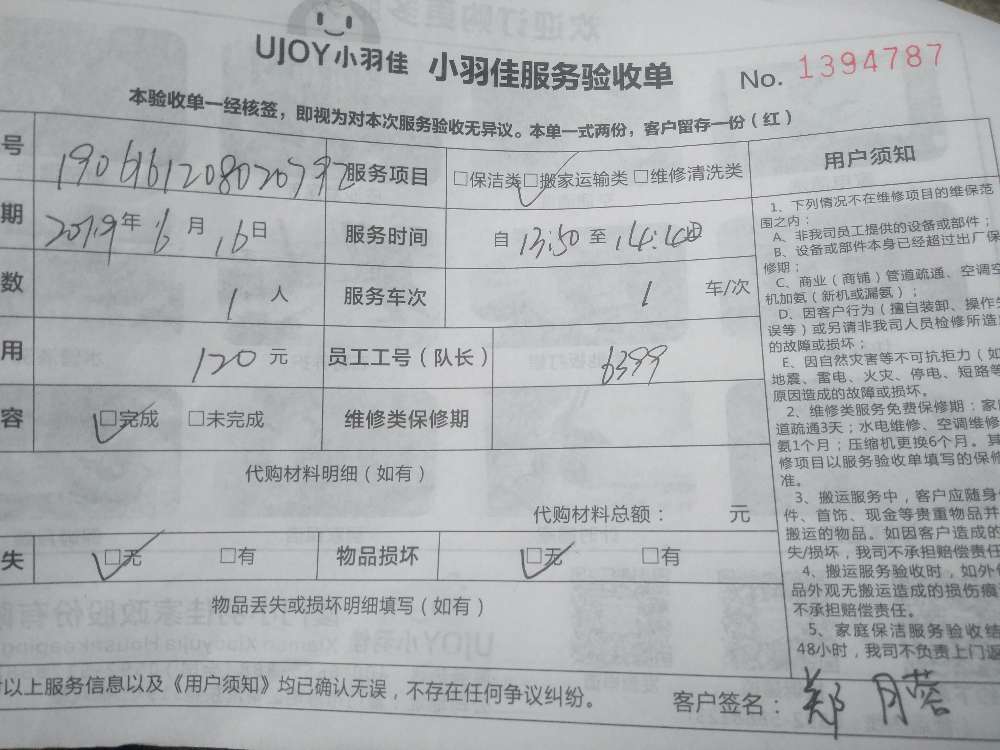 UJOY小羽佳 小羽佳服务验收单 No. 1394787
本验收单一经核签，即视为对本次服务验收无异议。本单一式两份，客户留存一份（红）
号 190616120802079 服务项目 □保洁类 □搬家运输类 □维修清洗类
期 2019年6月16日 服务时间 自 13:50 至 14:40
数 1 人 服务车次 1 车/次
用 120 元 员工工号（队长） 6399
容 □完成 □未完成 维修类保修期
代购材料明细（如有）
代购材料总额： 元
失 □无 □有 物品损坏 □无 □有
物品丢失或损坏明细填写（如有）
以上服务信息以及《用户须知》均已确认无误，不存在任何争议纠纷。
客户签名：郑月蓉
用户须知
1、下列情况不在维修项目的维保范
围之内：
A、非我司员工提供的设备或部件；
B、设备或部件本身已经超过出厂保
修期；
C、商业（商铺）管道疏通、空调空
机加氨（新机或漏氨）；
D、因客户行为（擅自装卸、操作失
误等）或另请非我司人员检修所造
的故障或损坏；
E、因自然灾害等不可抗拒力（如
地震、雷电、火灾、停电、短路等
原因造成的故障或损坏。
2、维修类服务免费保修期：家
道疏通3天；水电维修、空调维修
氨1个月；压缩机更换6个月。其
修项目以服务验收单填写的保修
准。
3、搬运服务中，客户应随身
件、首饰、现金等贵重物品并
搬运的物品。如因客户造成的
失/损坏，我司不承担赔偿责任
4、搬运服务验收时，如外
品外观无搬运造成的损伤痕
不承担赔偿责任。
5、家庭保洁服务验收结
48小时，我司不负责上门返